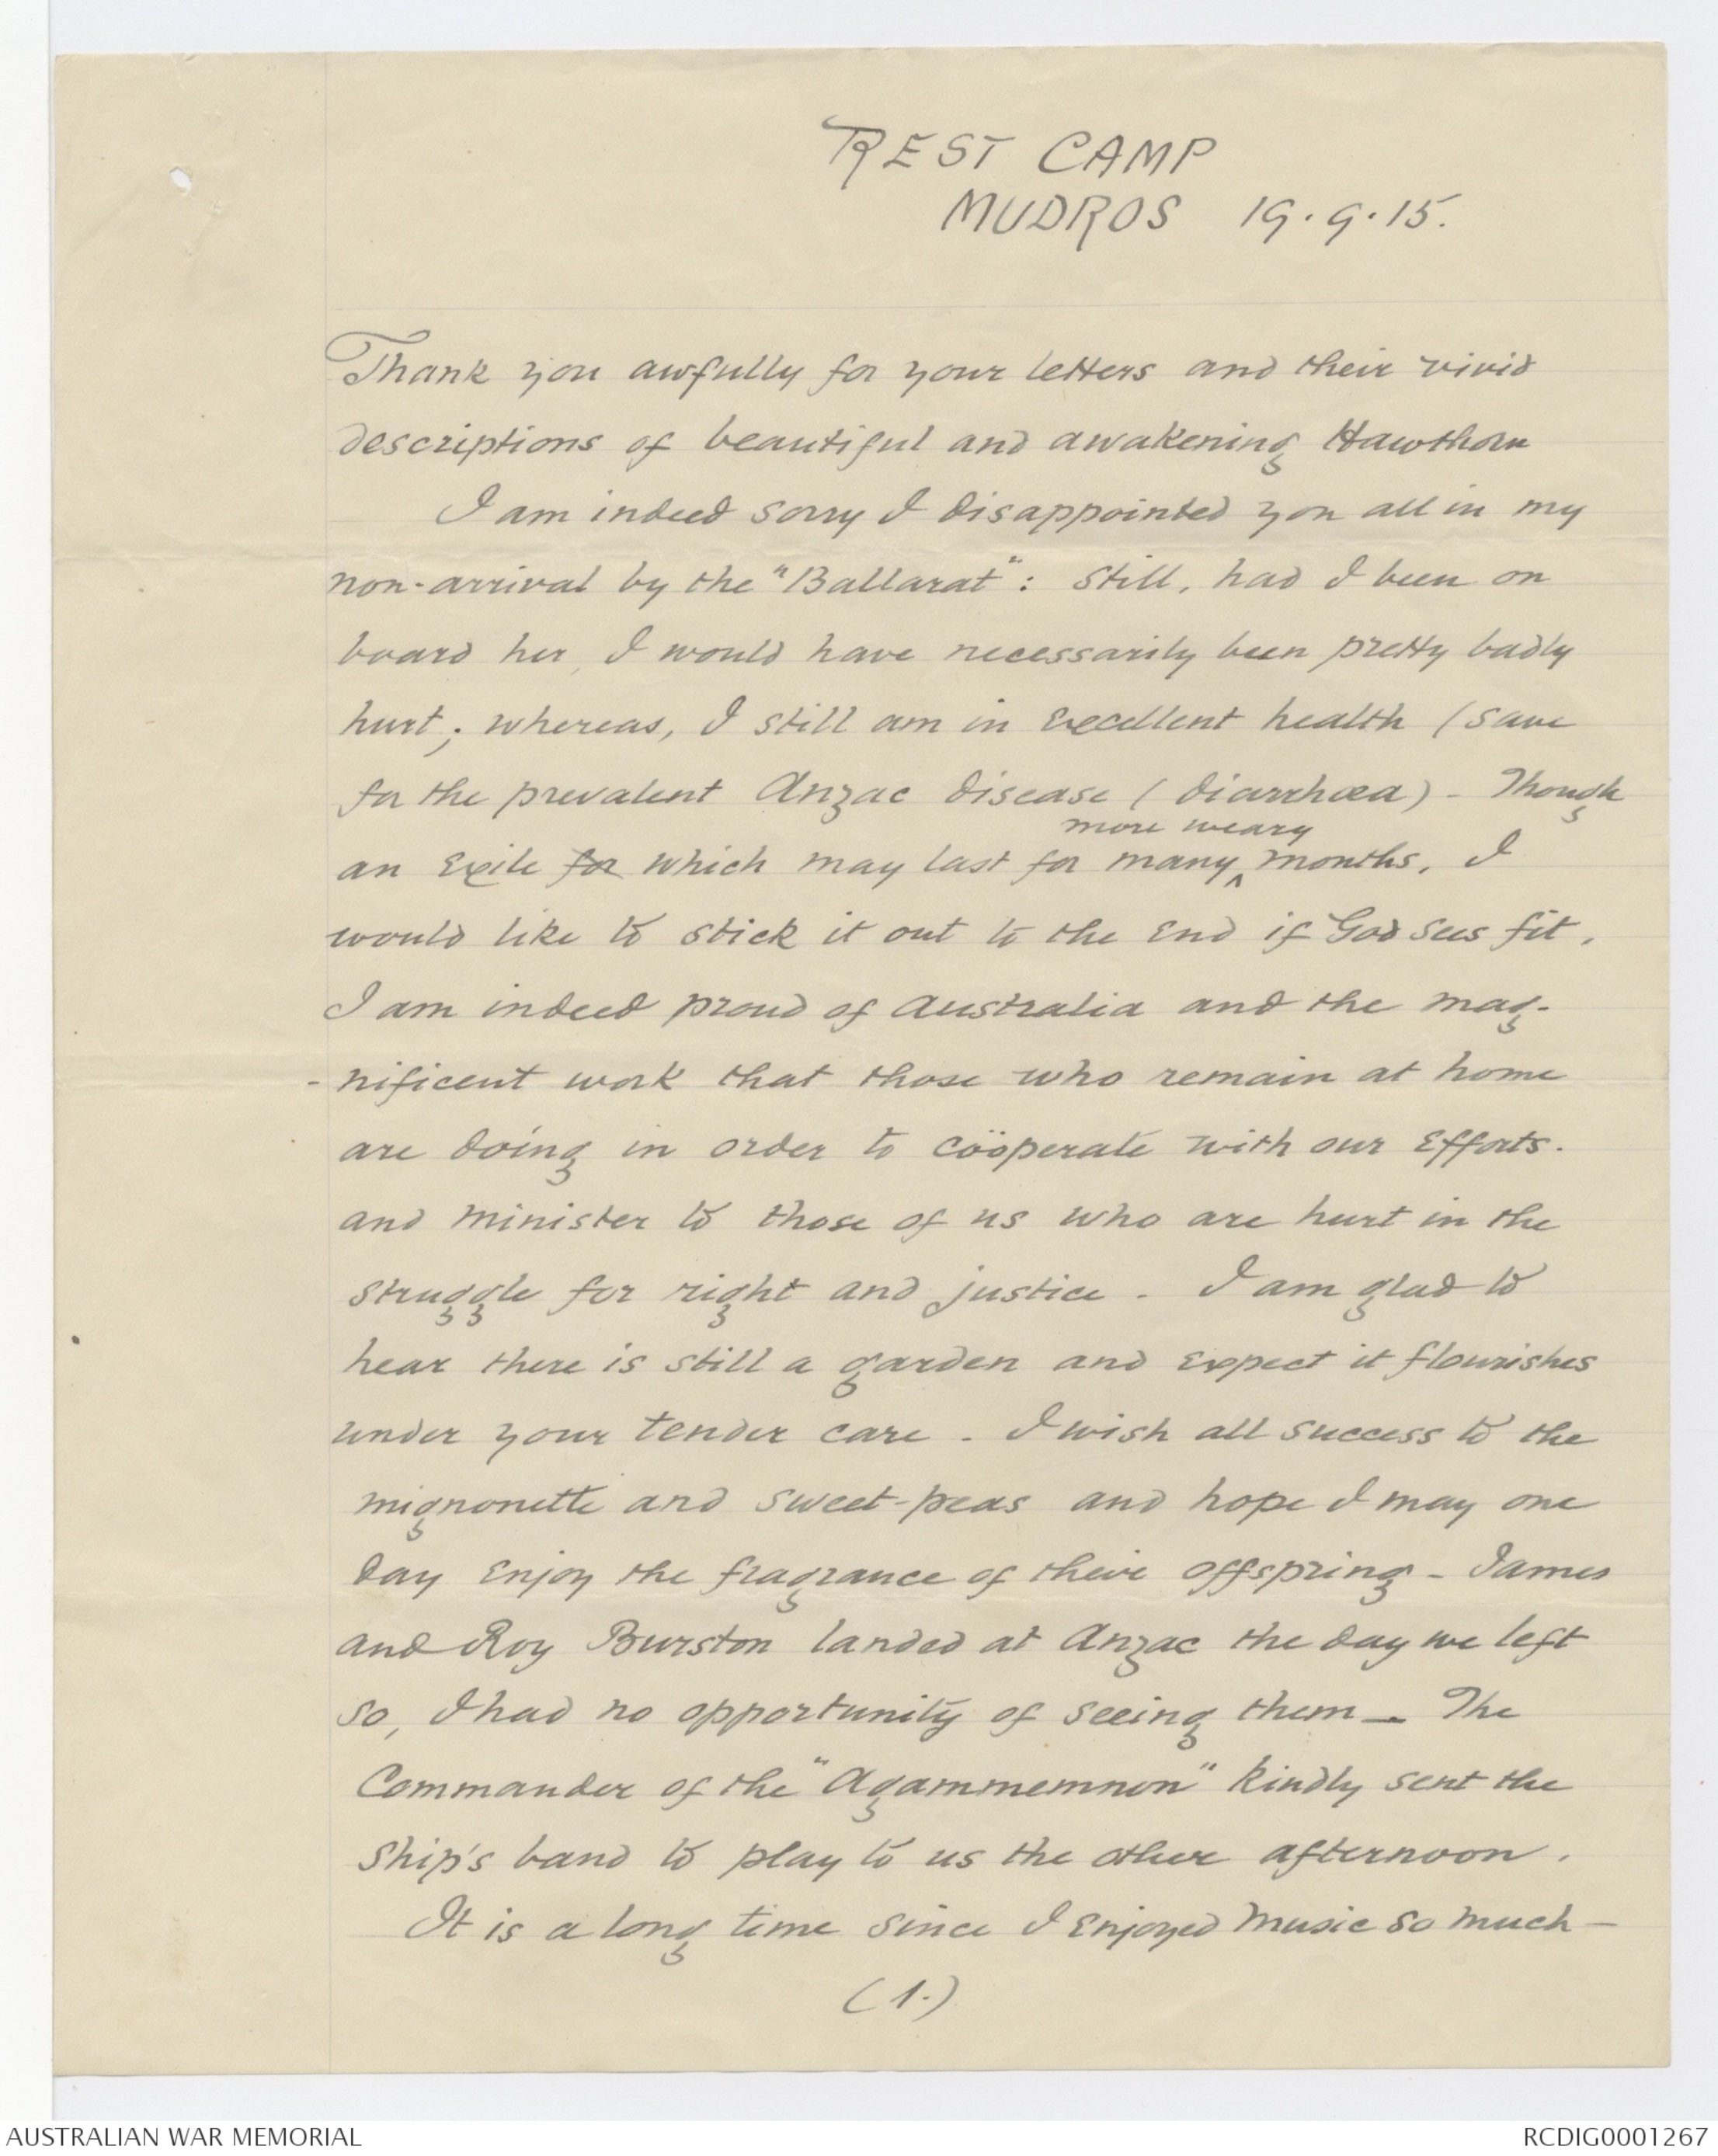 REST CAMP
MUDROS 19.9.15.
Thank you awfully for your letters and their vivid
descriptions of beautiful and awakening Hawthorn
I am indeed sorry I disappointed you all in my
non-arrival by the "Ballarat": still, had I been on
board her, I would have necessarily been pretty badly
hurt; whereas, I still am in excellent health (save
for the prevalent Anzac disease (diarrhœa) - Though
more weary
an exile for which may last for many ^ months, I
would like to stick it out to the end if God sees fit.
I am indeed proud of Australia and the mag-
-nificent work that those who remain at home
are doing in order to coöperate with our efforts.
and minister to those of us who are hurt in the
struggle for right and justice. I am glad to
hear there is still a garden and expect it flourishes
under your tender care. I wish all success to the
mignonette and sweet-peas and hope I may one
day enjoy the fragrance of their offspring - James
and Roy Burston landed at Anzac the day we left
so, I had no opportunity of seeing them - The
Commander of the "Agammemnon" kindly sent the
ship's band to play to us the other afternoon.
It is a long time since I enjoyed music so much -
(1.)
AUSTRALIAN WAR MEMORIAL
RCDIG0001267